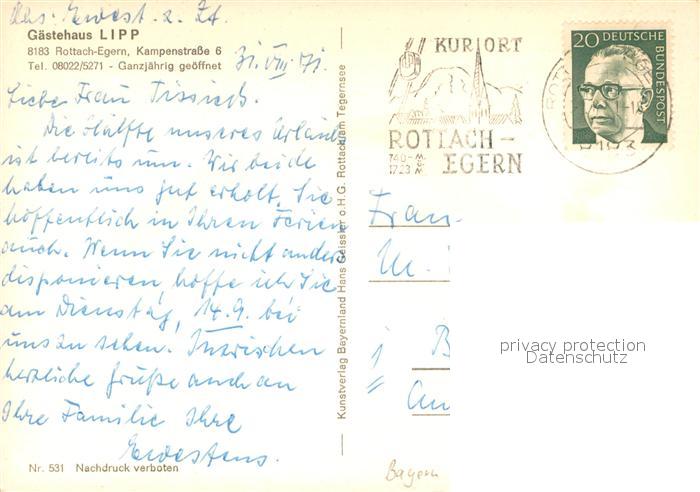 Abs: Ewest. z. Zt.
Gästehaus LIPP
8183 Rottach-Egern, Kampenstraße 6
Tel. 08022/5271 - Ganzjährig geöffnet
31. VIII. 71.
Liebe Frau
Die Hälfte unseres Urlaubs
ist bereits um. Wir beide
haben uns gut erholt, Sie
hoffentlich in Ihren Ferien
auch. Wenn Sie nicht anders
disponieren, hoffe ich Sie
am Dienstag, 14.9. bei
uns zu sehen. Inzwischen
herzliche Grüße auch an
Ihre Familie Ihre
Ewestens.
Nr. 531 Nachdruck verboten
Kunstverlag Bayernland Hans Geissler o.H.G. Rottach am Tegernsee
KURORT
ROTTACH-
EGERN
740-
1723 m
20 DEUTSCHE
BUNDESPOST
8183
Frau
M.
B
An
privacy protection
Datenschutz
Bayern